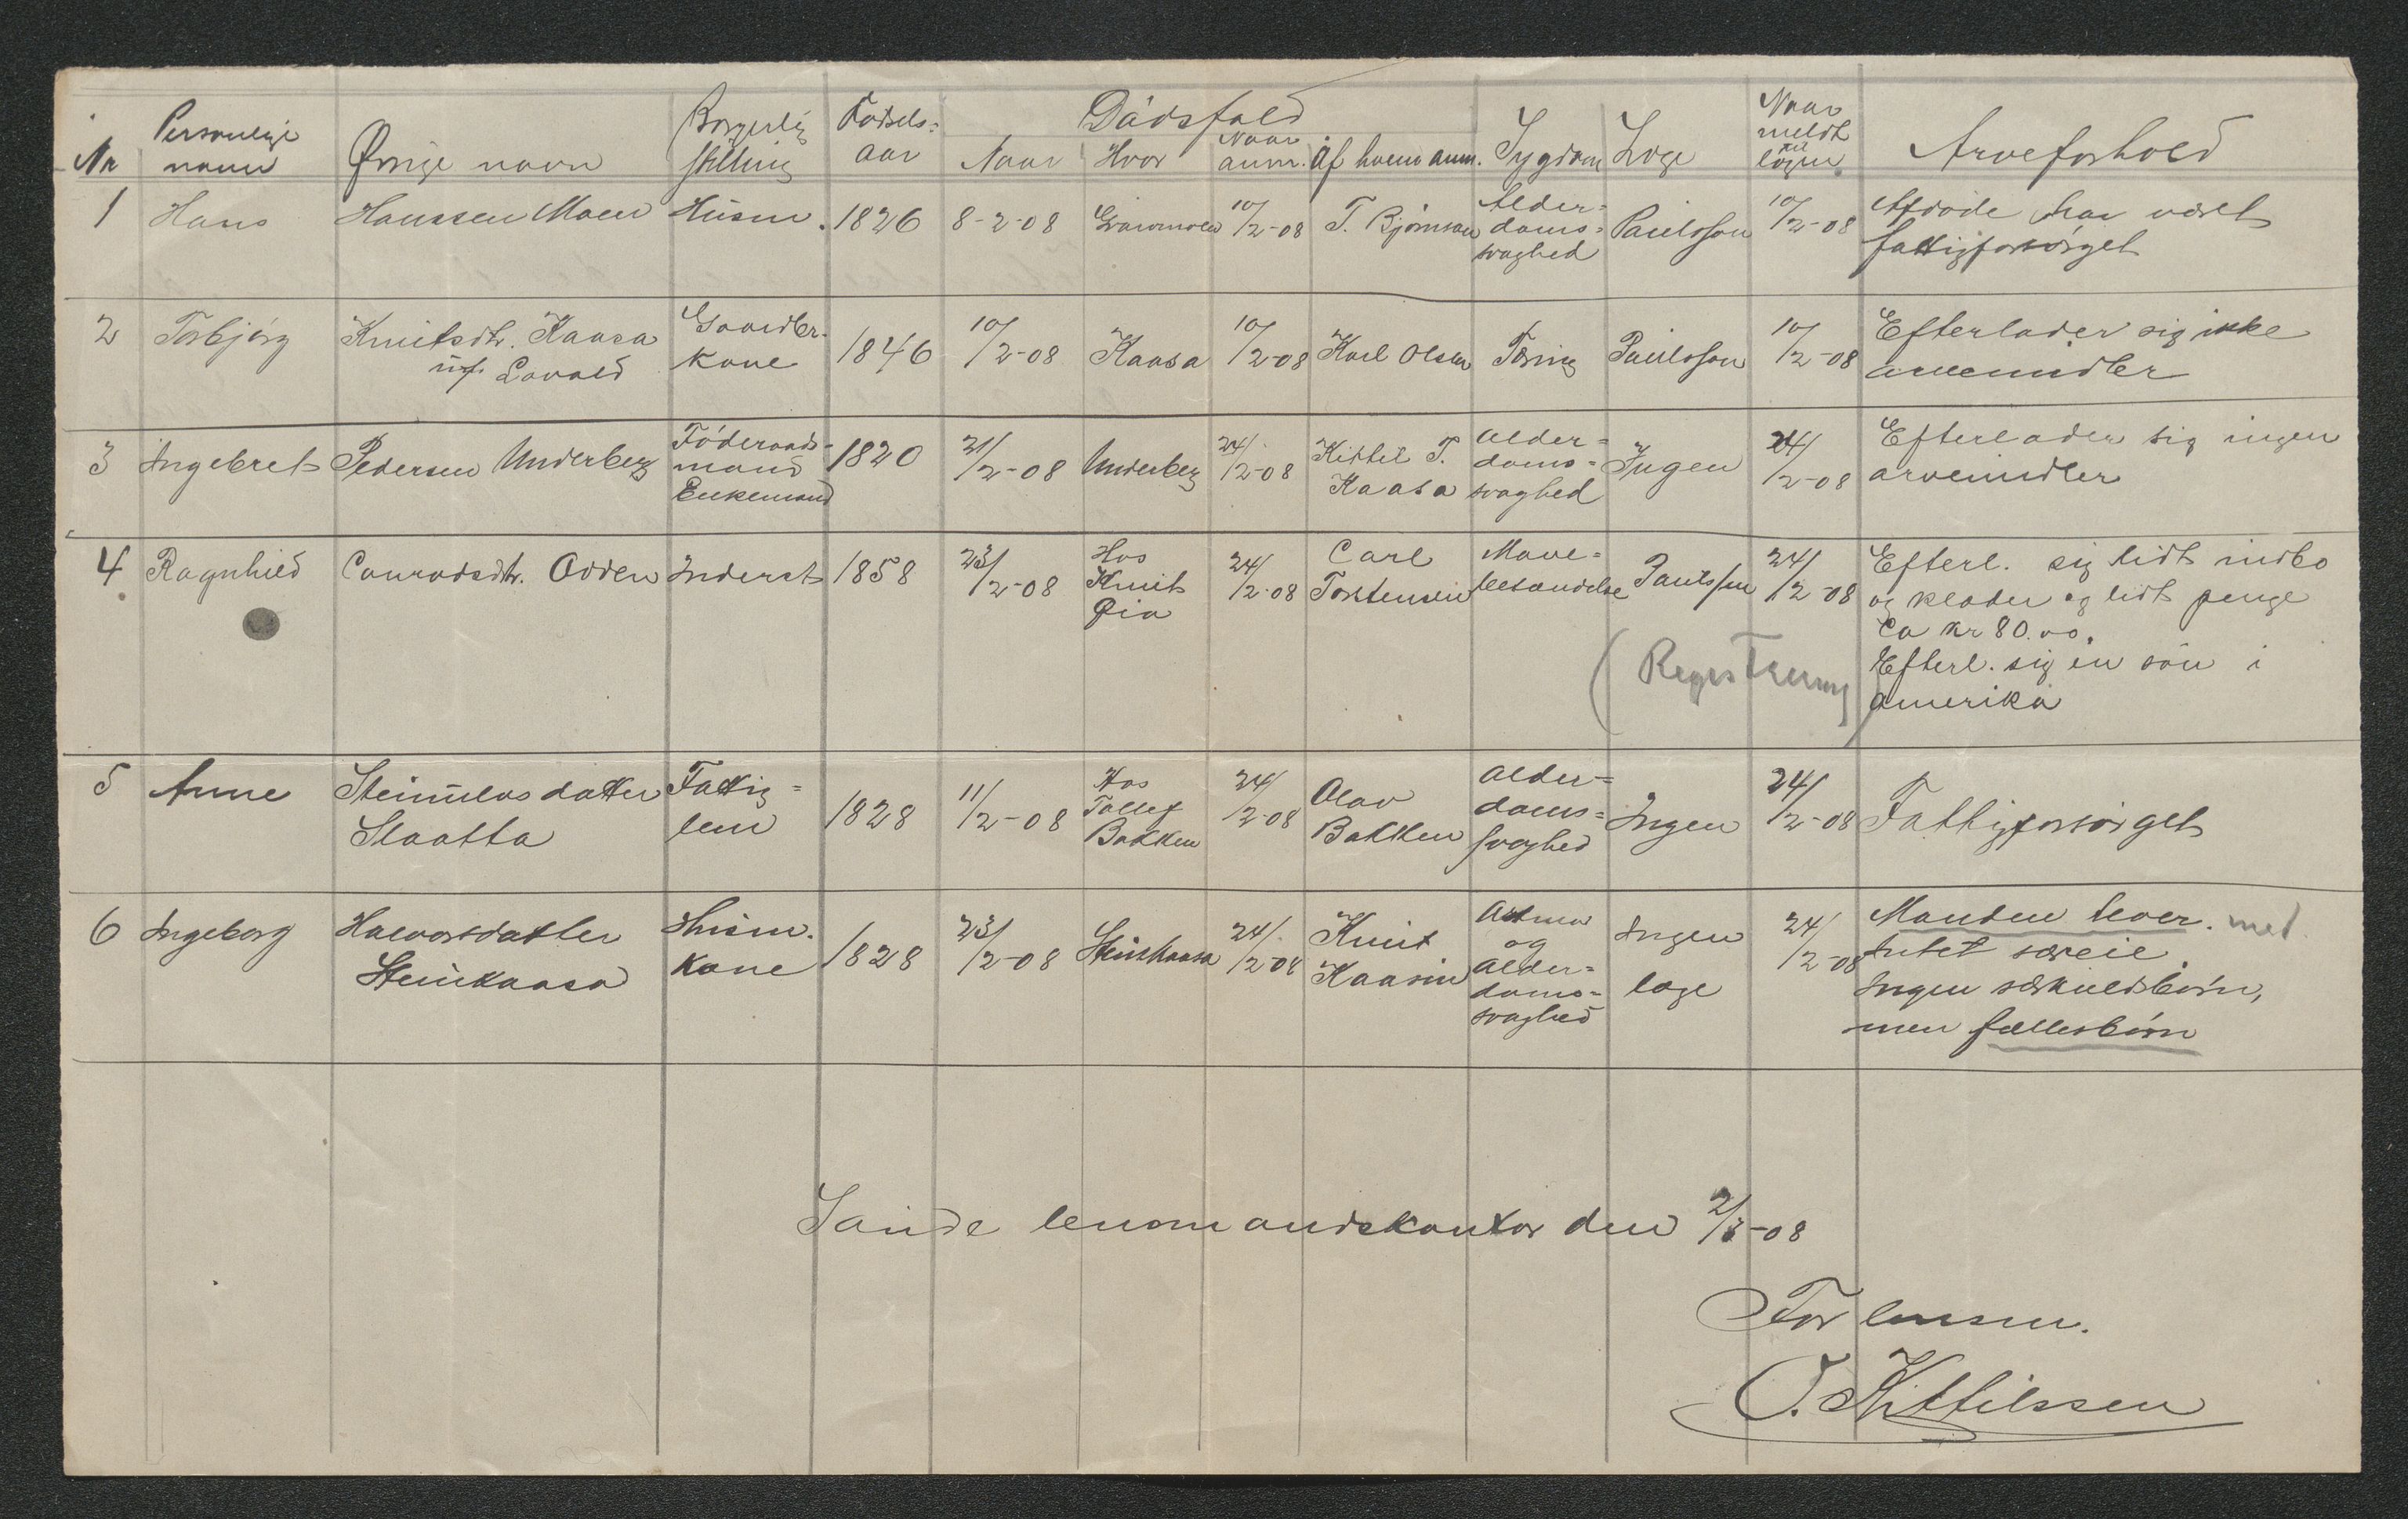 Nr Personlige navn Øvrige navn Borgerlig stilling Fødsels= aar Dødsfald Naar Hvor Naar anm. Af hvem anm. Sygdom Læge Naar meldt til lægen Arveforhold
1 Hans Hanssen Moen Husm. 1826 8-2-08 10/2-08 T. Bjørnson Alder= doms= svaghed Paulsson 10/2-08 Afdøde har været
fattigforsørget
2 Torbjørg Knutsdtr. Kaasa Gaardbr. kone 1846 10/2-08 Kaasa 10/2-08 Karl Olsen Tæring Paulsson 10/2-08 Efterlader sig ikke
født Lavold umyndige
3 Ingebret Pedersen Underberg Føderaads= mand Enkemand 1820 21/2-08 Underberg 24/2-08 Kittil T. Kaasa alder= doms= svaghed Ingen 24/2-08 Efterlader sig ingen
arvemidler
4 Ragnhild Conradsdtr. Odden Inderst 1858 23/2-08 Hos Knut Øia 24/2-08 Carl Torstensen Mave= betændelse Paulsson 24/2-08 Efterl. sig lidt indbo
og klæder og lidt penge
Ca kr 80.00.
(Registrering) Efterl. sig en søn i
Amerika
5 Anne Steinulvsdatter Slaatta Fattig= lem 1828 11/2-08 Hos Tollef Bakken 24/2-08 Olav Bakken alder= doms= svaghed Ingen 24/2-08 Fattigforsørget
6 Ingeborg Halvorsdatter Steinkaasa Husm. kone 1828 23/2-08 Steinkaasa 24/2-08 Knut Kaasin Astma og alder= doms= svaghed Ingen læge 24/2-08 Manden lever. med
Intet særeie.
Ingen særkuldsbørn,
men fællesbørn
Saude lensmandskontor den 2/3-08
For lensm.
O. Kittilssen